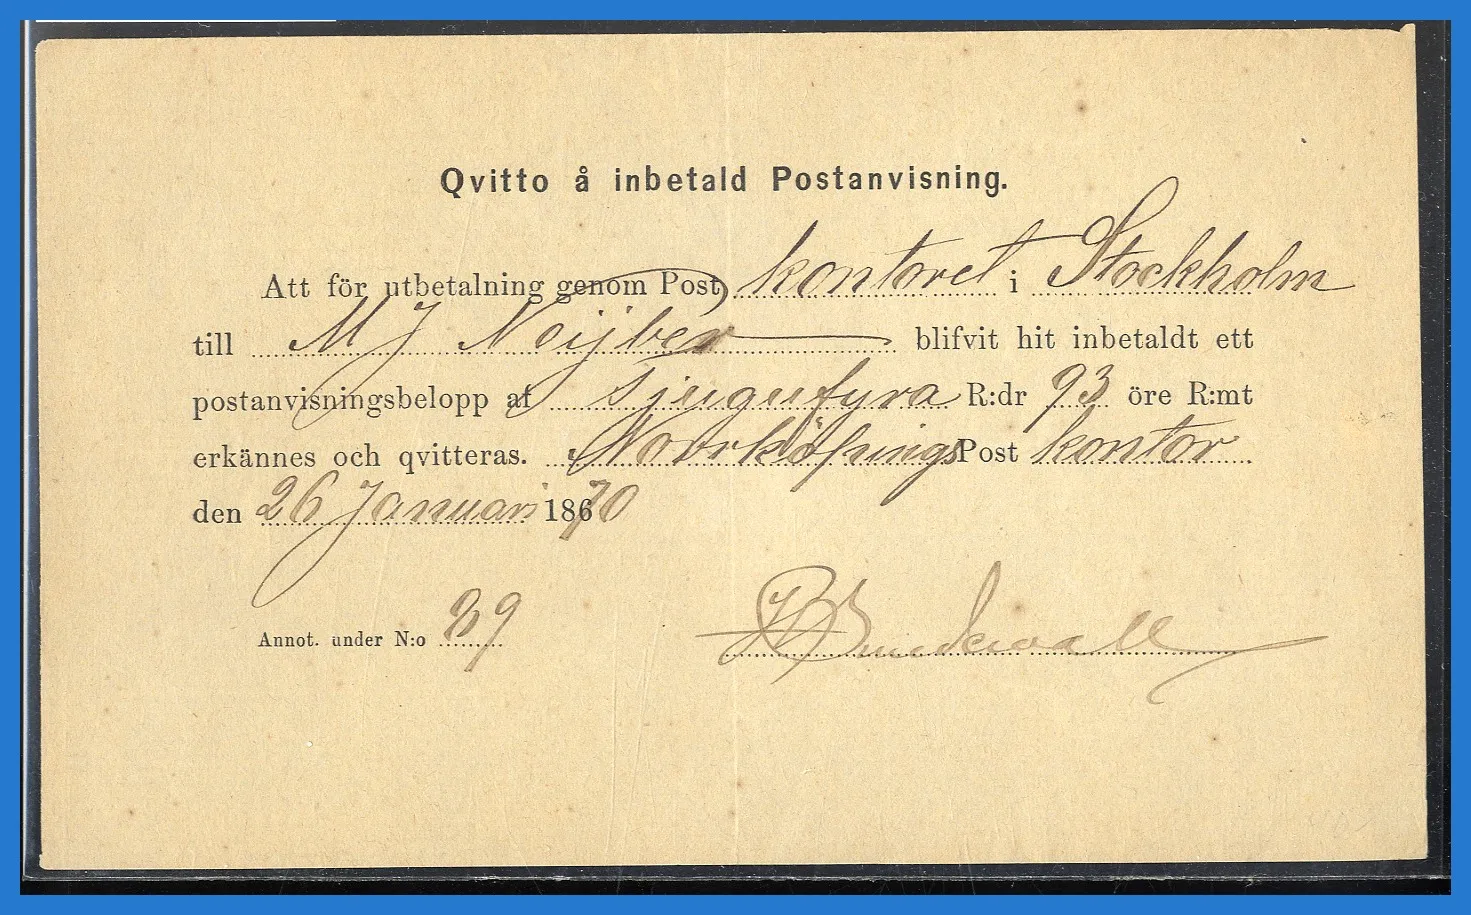 Qvitto å inbetald Postanvisning.
Att för utbetalning genom Post kontoret i Stockholm
till M J blifvit hit inbetaldt ett
postanvisningsbelopp af tjugufyra R:dr 93 öre R:mt
erkännes och qvitteras. Norrköpings Post kontor
den 26 Januari 18670
Annot. under N:o 89